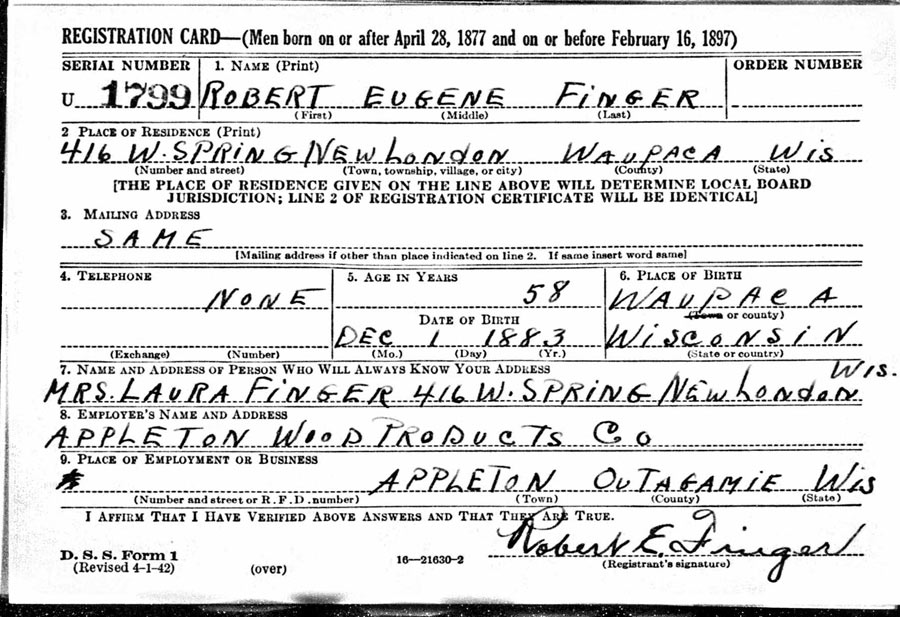 REGISTRATION CARD—(Men born on or after April 28, 1877 and on or before February 16, 1897)
SERIAL NUMBER 1. NAME (Print) ORDER NUMBER
U 1799 ROBERT EUGENE FINGER
(First) (Middle) (Last)
2 PLACE OF RESIDENCE (Print)
416 W. SPRING NEW LONDON WAUPACA WIS
(Number and street) (Town, township, village, or city) (County) (State)
[THE PLACE OF RESIDENCE GIVEN ON THE LINE ABOVE WILL DETERMINE LOCAL BOARD
JURISDICTION; LINE 2 OF REGISTRATION CERTIFICATE WILL BE IDENTICAL]
3. MAILING ADDRESS
SAME
[Mailing address if other than place indicated on line 2. If same insert word same]
4. TELEPHONE 5. AGE IN YEARS 6. PLACE OF BIRTH
NONE 58 WAUPACA
DATE OF BIRTH (Town or county)
DEC 1 1883 WISCONSIN
(Exchange) (Number) (Mo.) (Day) (Yr.) (State or country)
7. NAME AND ADDRESS OF PERSON WHO WILL ALWAYS KNOW YOUR ADDRESS WIS.
MRS. LAURA FINGER 416 W. SPRING NEW LONDON
8. EMPLOYER'S NAME AND ADDRESS
APPLETON WOOD PRODUCTS CO
9. PLACE OF EMPLOYMENT OR BUSINESS
APPLETON OUTAGAMIE WIS
(Number and street or R. F. D. number) (Town) (County) (State)
I AFFIRM THAT I HAVE VERIFIED ABOVE ANSWERS AND THAT THEY ARE TRUE.
Robert E. Finger
D. S. S. Form 1
(Revised 4-1-42) (over) 16—21630-2 (Registrant's signature)